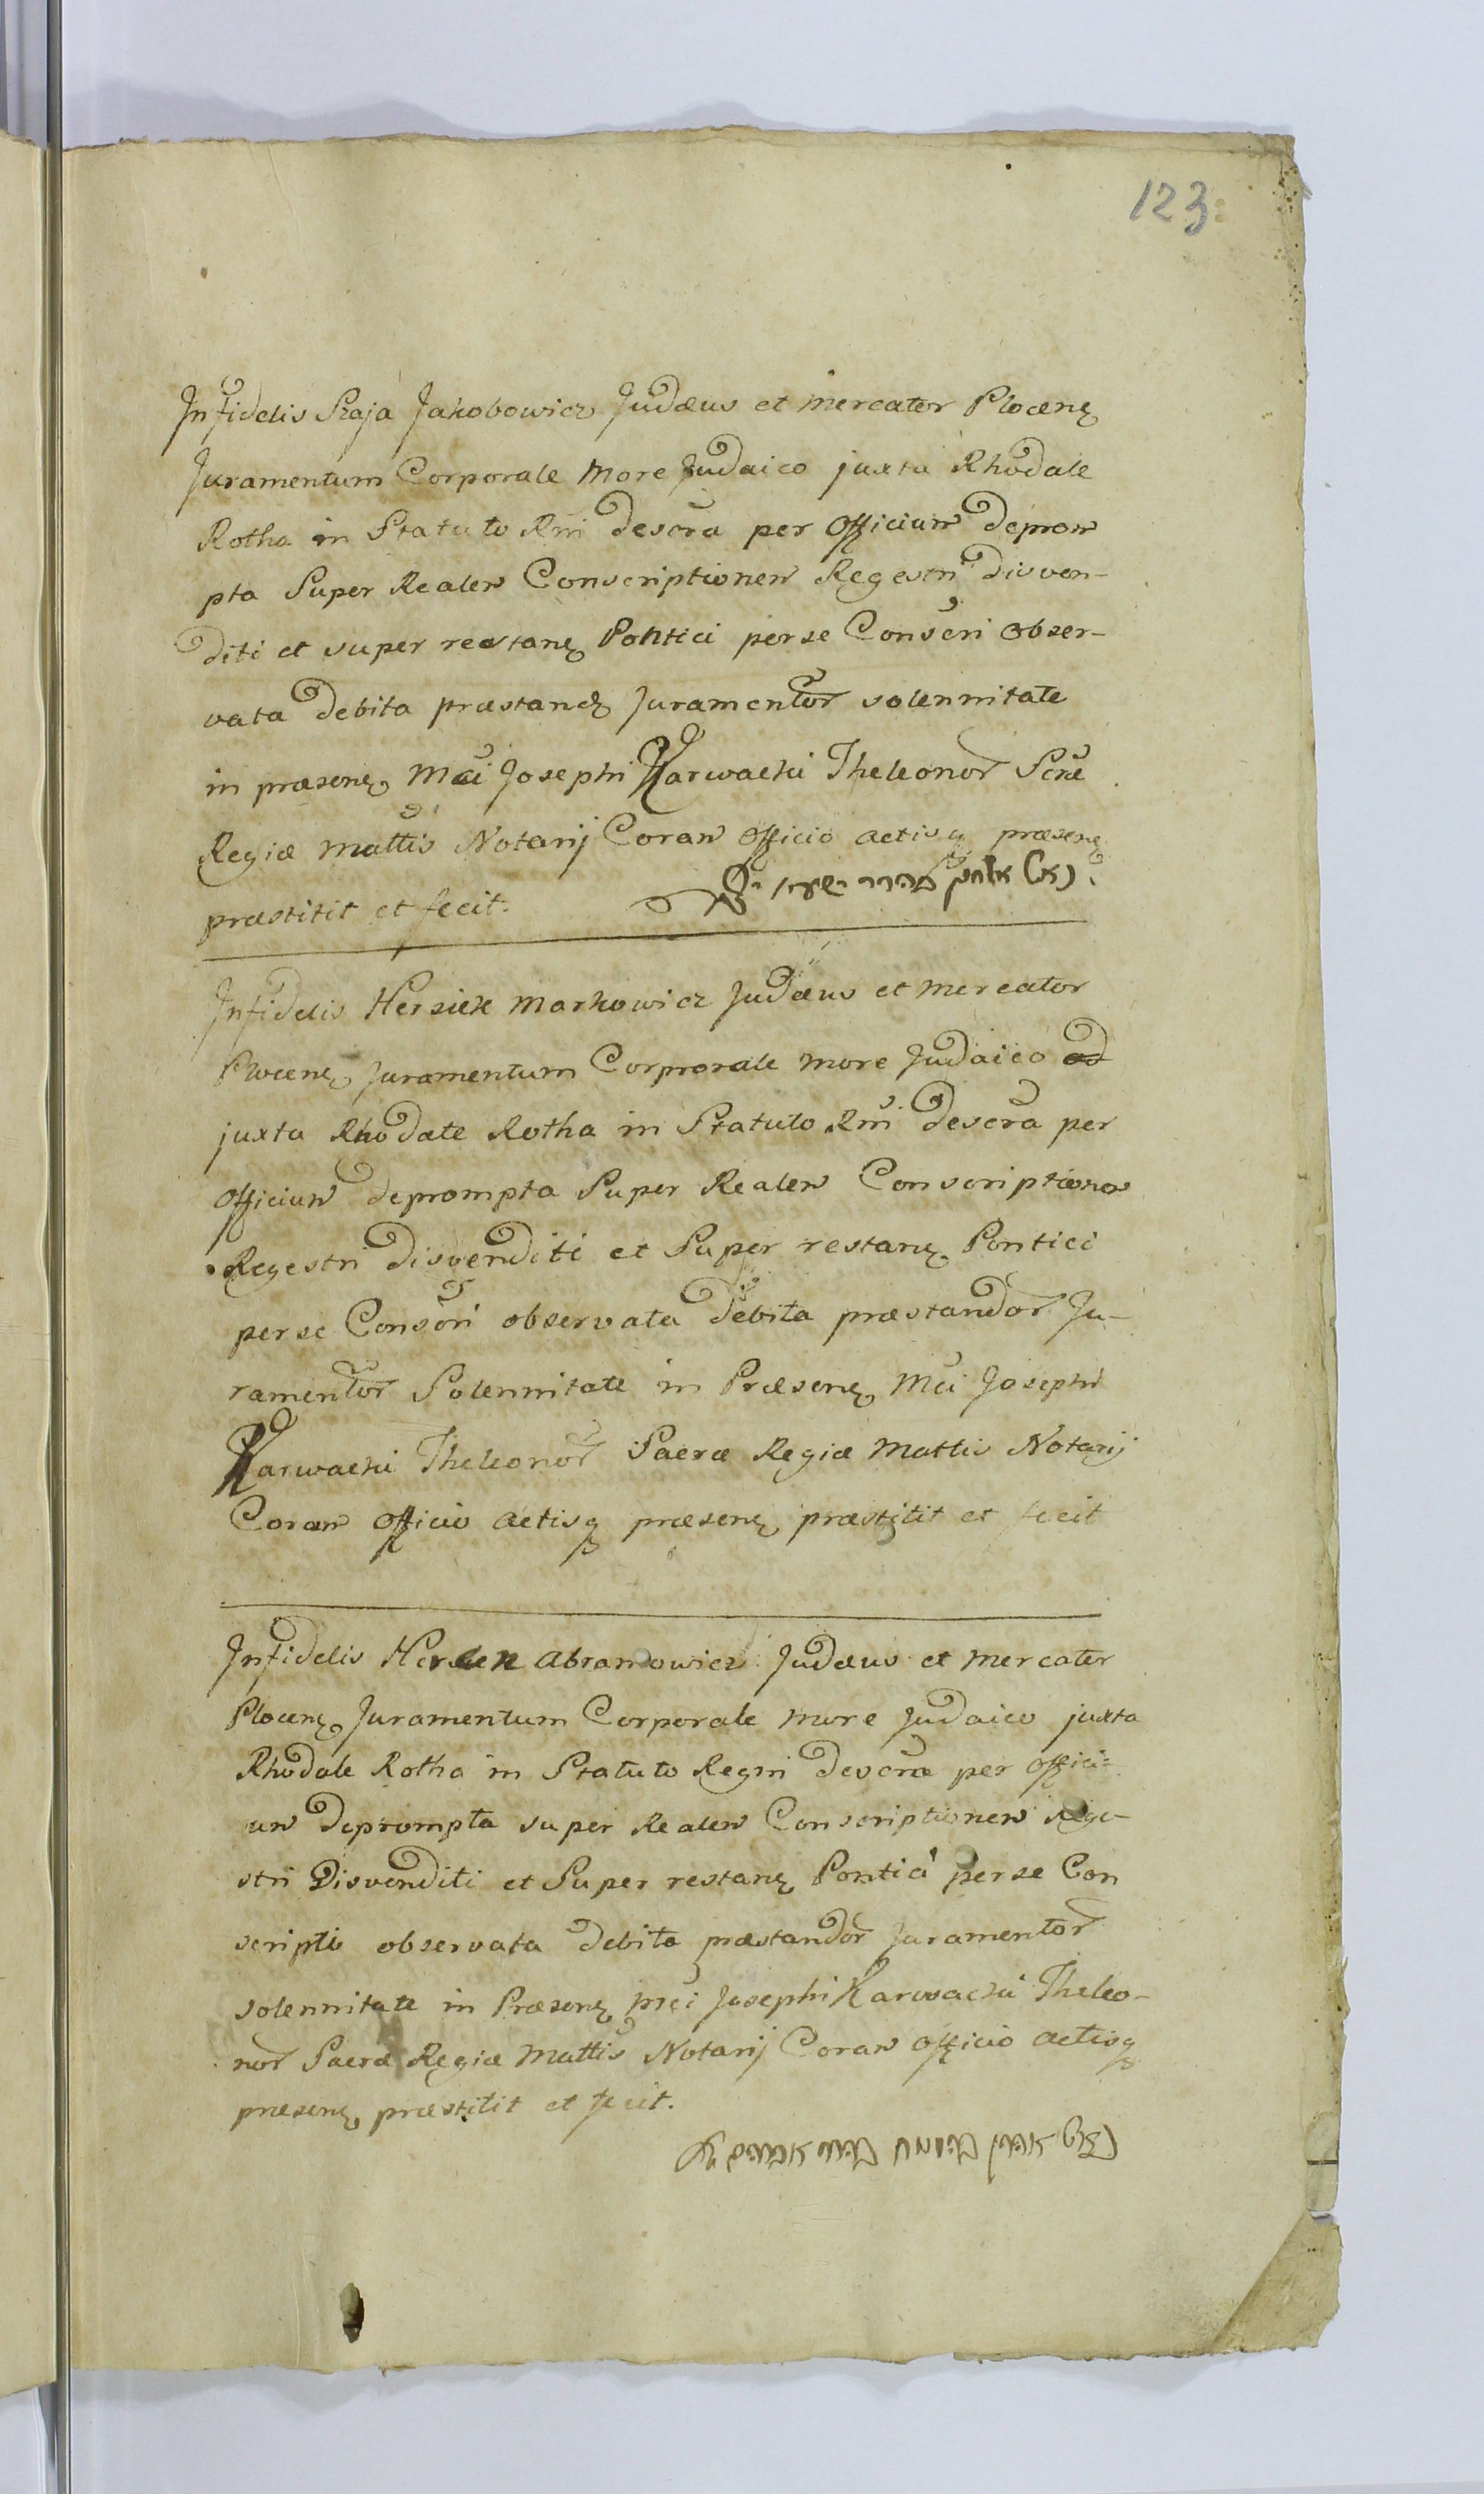 123.
Infidelis Szaja Jakobowicz Judæus et mercator Plocen̄
Juramentum Corporale more Judaico juxta Rhodale
Rotha in Statuto Rni descra per Officium deprom
pta Super Realem Conscriptionem Regestri disven-
diti et super restan̄ Pontici per se Conscri obser-
vata debita præstand̄ Juramentor solennitate
in præsen̄ Mei Josephi Karwacki Theleonor Scræ
Regiæ Mattis Notarij Coram Officio actisq præsen̄
præstitit et fecit.
Infidelis Herszek Markowicz Judæus et mercator
Plocen̄ Juramentum Corporale more Judaico ad
juxta Rhodale Rotha in Statuto Rni descra per
Officium deprompta Super Realem Conscriptionem
Regestri disvenditi et Super restan̄ Pontici
per se Conscri observata debita præstandor Ju-
ramentor Solennitate in Præsen̄ Mei Josephi
Karwacki Theleonor Sacræ Regiæ Mattis Notarij
Coram Officio actisq præsen̄ præstitit et fecit
Infidelis Herszek Abramowicz Judæus et mercator
Plocen̄ Juramentum Corporale more Judaico juxta
Rhodale Rotha in Statuto Regni descra per Offici=
um deprompta super Realem Conscriptionem Rege-
stri Disvenditi et Super restan̄ Pontici per se Con
scripti observata debita præstandor Juramentor
solennitate in Præsen̄ mei Josephi Karwacki Theleo-
nor Sacræ Regiæ Mattis Notarij Coram Officio actisq
præsen̄ præstitit et fecit.